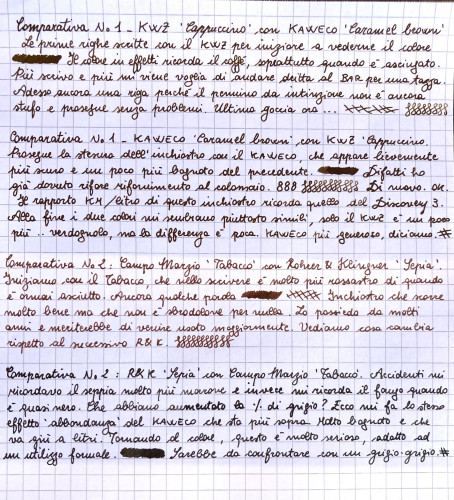 Comparativa No 1 - KWZ 'Cappuccino' con KAWECO 'Caramel brown'
Le prime righe scritte con il KWZ per iniziare a vederne il colore
Il colore in effetti ricorda il caffè, soprattutto quando è asciugato.
Più scrivo e più mi viene voglia di andare dritta al BAR per una tazza
Adesso ancora una riga perché il pennino da intinzione non è ancora
stufo e prosegue senza problemi. Ultima goccia ora ...
Comparativa No 1 - KAWECO 'Caramel brown' con KWZ 'Cappuccino.
Prosegue la stesura dell'inchiostro con il KAWECO, che appare lievemente
più scuro e un poco più bagnato del precedente. Difatti ho
già dovuto rifare rifornimento al calamaio. 888 Di nuovo. OK.
Il rapporto KM/litro di questo inchiostro ricorda quello del Discovery 3.
Alla fine i due colori mi sembrano piuttosto simili, solo il KWZ è un poco
più .. verdognolo, ma la differenza è poca. KAWECO più generoso, diciamo. #
Comparativa No 2: Campo Marzio 'Tabacco' con Rohrer & Klingner 'Sepia'.
Iniziamo con il Tabacco, che nello scrivere è molto più rossastro di quando
è ormai asciutto. Ancora qualche parola Inchiostro che scorre
molto bene ma che non è sbrodolone per nulla. Lo possiedo da molti
anni e meriterebbe di venire usato maggiormente. Vediamo cosa cambia
rispetto al successivo R&K.
Comparativa No 2 : R&K 'Sepia' con Campo Marzio 'Tabacco'. Accidenti mi
ricordavo il seppia molto più marrone e invece mi ricorda il fango quando
è quasi nero. Che abbiano aumentato la % di grigio? Ecco mi fa lo stesso
effetto 'abbondanza' del KAWECO che sta più sopra. Molto bagnato e che
va giù a litri. Tornando al colore, questo è molto serioso, adatto ad
un utilizzo formale. Sarebbe da confrontare con un grigio-grigio. #